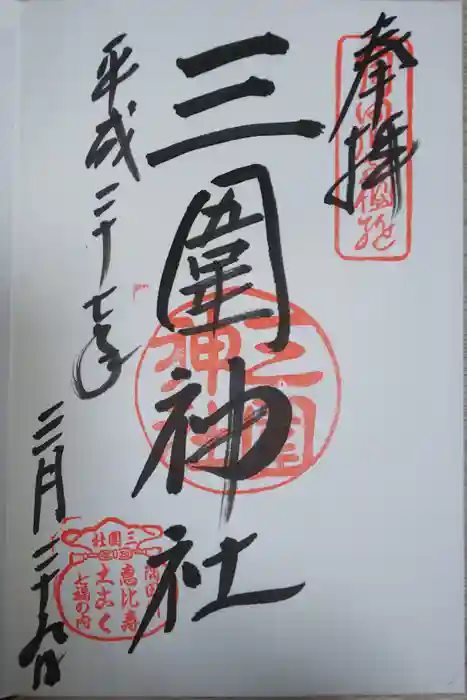 奉拝
三圍神社
平成二十七年
三月二十九日
三圍社
隅田川
恵比寿
大こく
七福の内